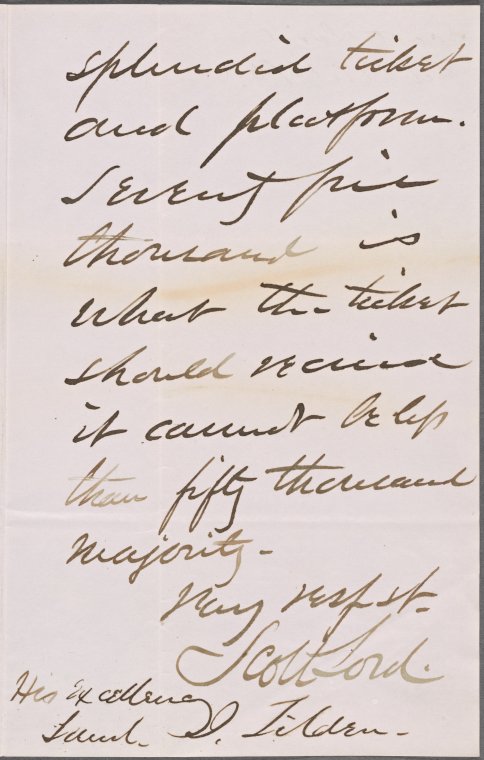 splendid ticket
and platform.
Seventy five
thousand is
what the ticket
should receive
it cannot be less
than fifty thousand
majority -
Very respct.
Scott Lord.
His Excellency
Saml. J. Tilden -